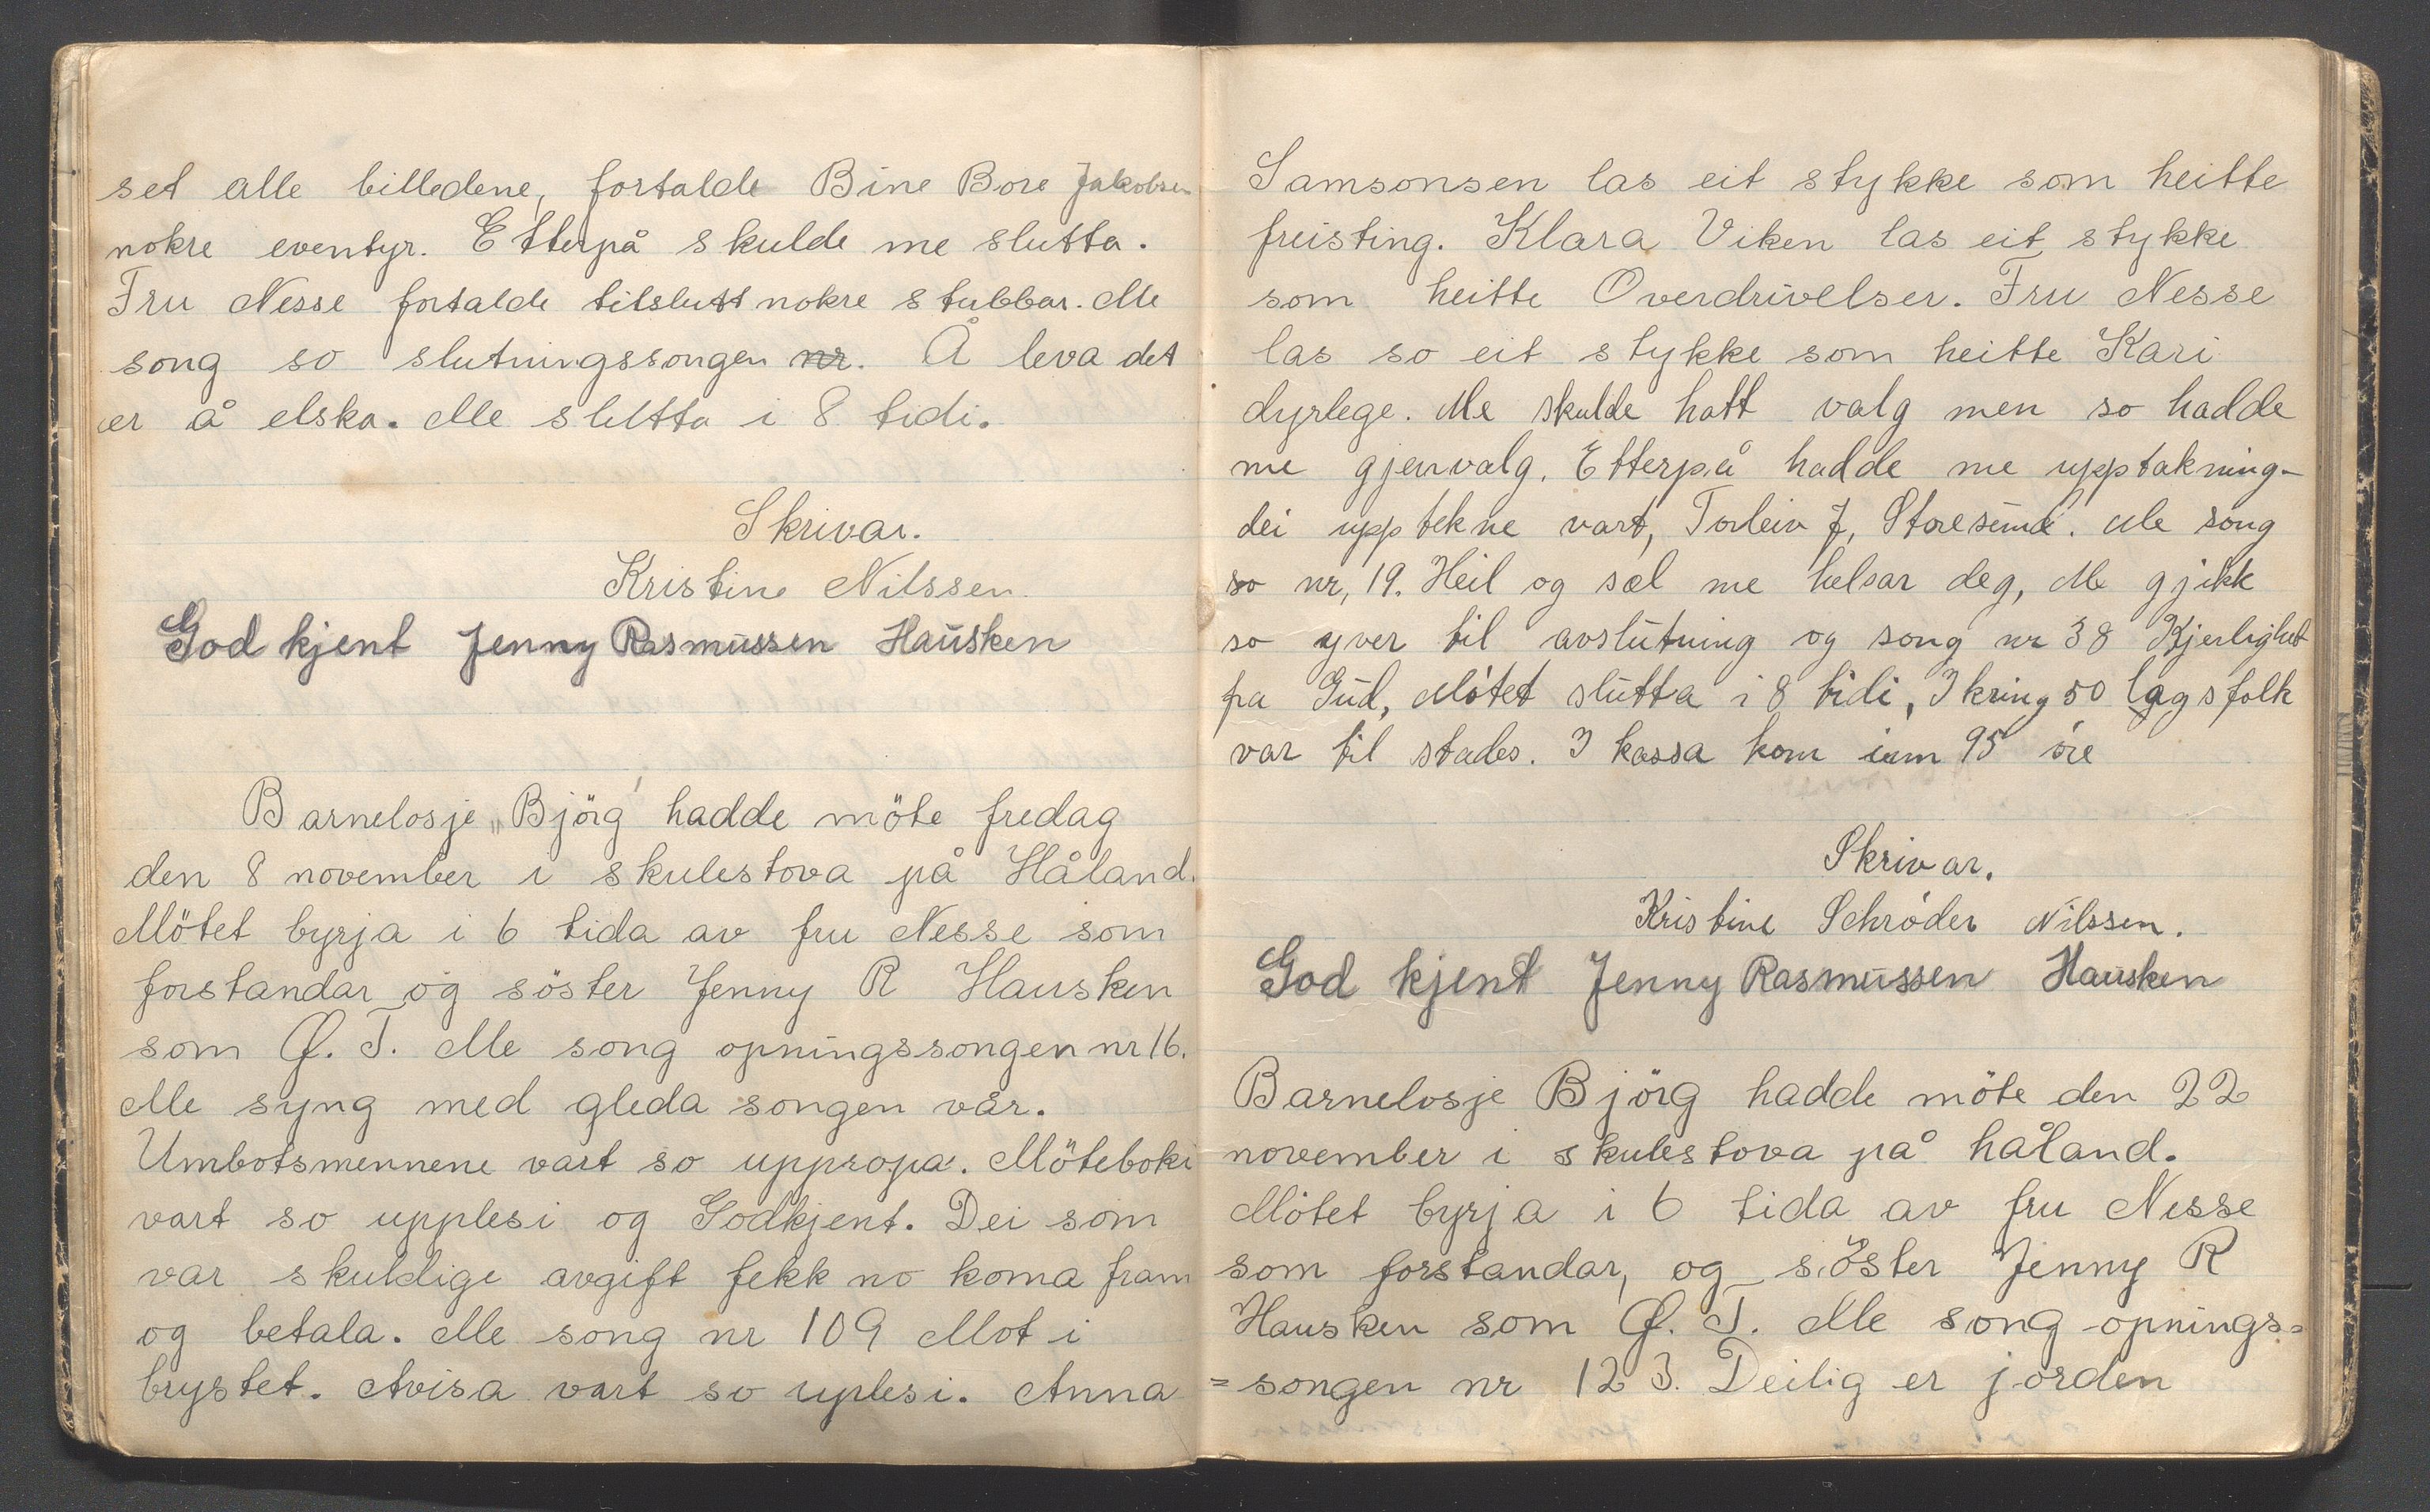 set alle billedene, fortalde Bine Bore Jakobsen
nokre eventyr. Etterpå skulde me slutta.
Fru Nesse fortalde tilslutt nokre stubbar. Me
song so slutningssongen nr. Å leva det
er å elska. Me slutta i 8 tidi.
Skrivar.
Kristine Nilssen.
God kjent Jenny Rasmussen Hausken
Barnelosje „Björg" hadde möte fredag
den 8 november i skulestova på Håland.
Mötet byrja i 6 tida av fru Nesse som
forstandar og söster Jenny R Hausken
som Ø. T. Me song opningssongen nr 16.
Me syng med gleda songen vår.
Umbotsmennene vart so uppropa. Möteboki
vart so upplesi og Godkjent. Dei som
var skuldige avgift fekk no koma fram
og betala. Me song nr 109 Mot i
brystet. Avisa vart so uplesi. Anna
Samsonsen las eit stykke som heitte
freisting. Klara Viken las eit stykke
som heitte Overdrivelser. Fru Nesse
las so eit stykke som heitte Kari
dyrlege. Me skulde hatt valg men so hadde
me gjenvalg. Etterpå hadde me upptakning-
dei upptekne vart, Torleiv J, Storesund. Me song
so nr, 19. Heil og sæl me helsar deg, Me gjikk
so yver til avslutning og song nr 38 Kjerlighet
fra Gud, Mötet slutta i 8 tidi, Ikring 50 lagsfolk
var til stades. I kassa kom inn 95 öre
Skrivar.
Kristine Schröder Nilssen.
God kjent Jenny Rasmussen Hausken
Barnelosje Björg hadde möte den 22
november i skulestova på håland.
Mötet byrja i 6 tida av fru Nesse
som forstandar, og söster Jenny R
Hausken som Ø. T. Me song opnings=
=songen nr 123. Deilig er jorden